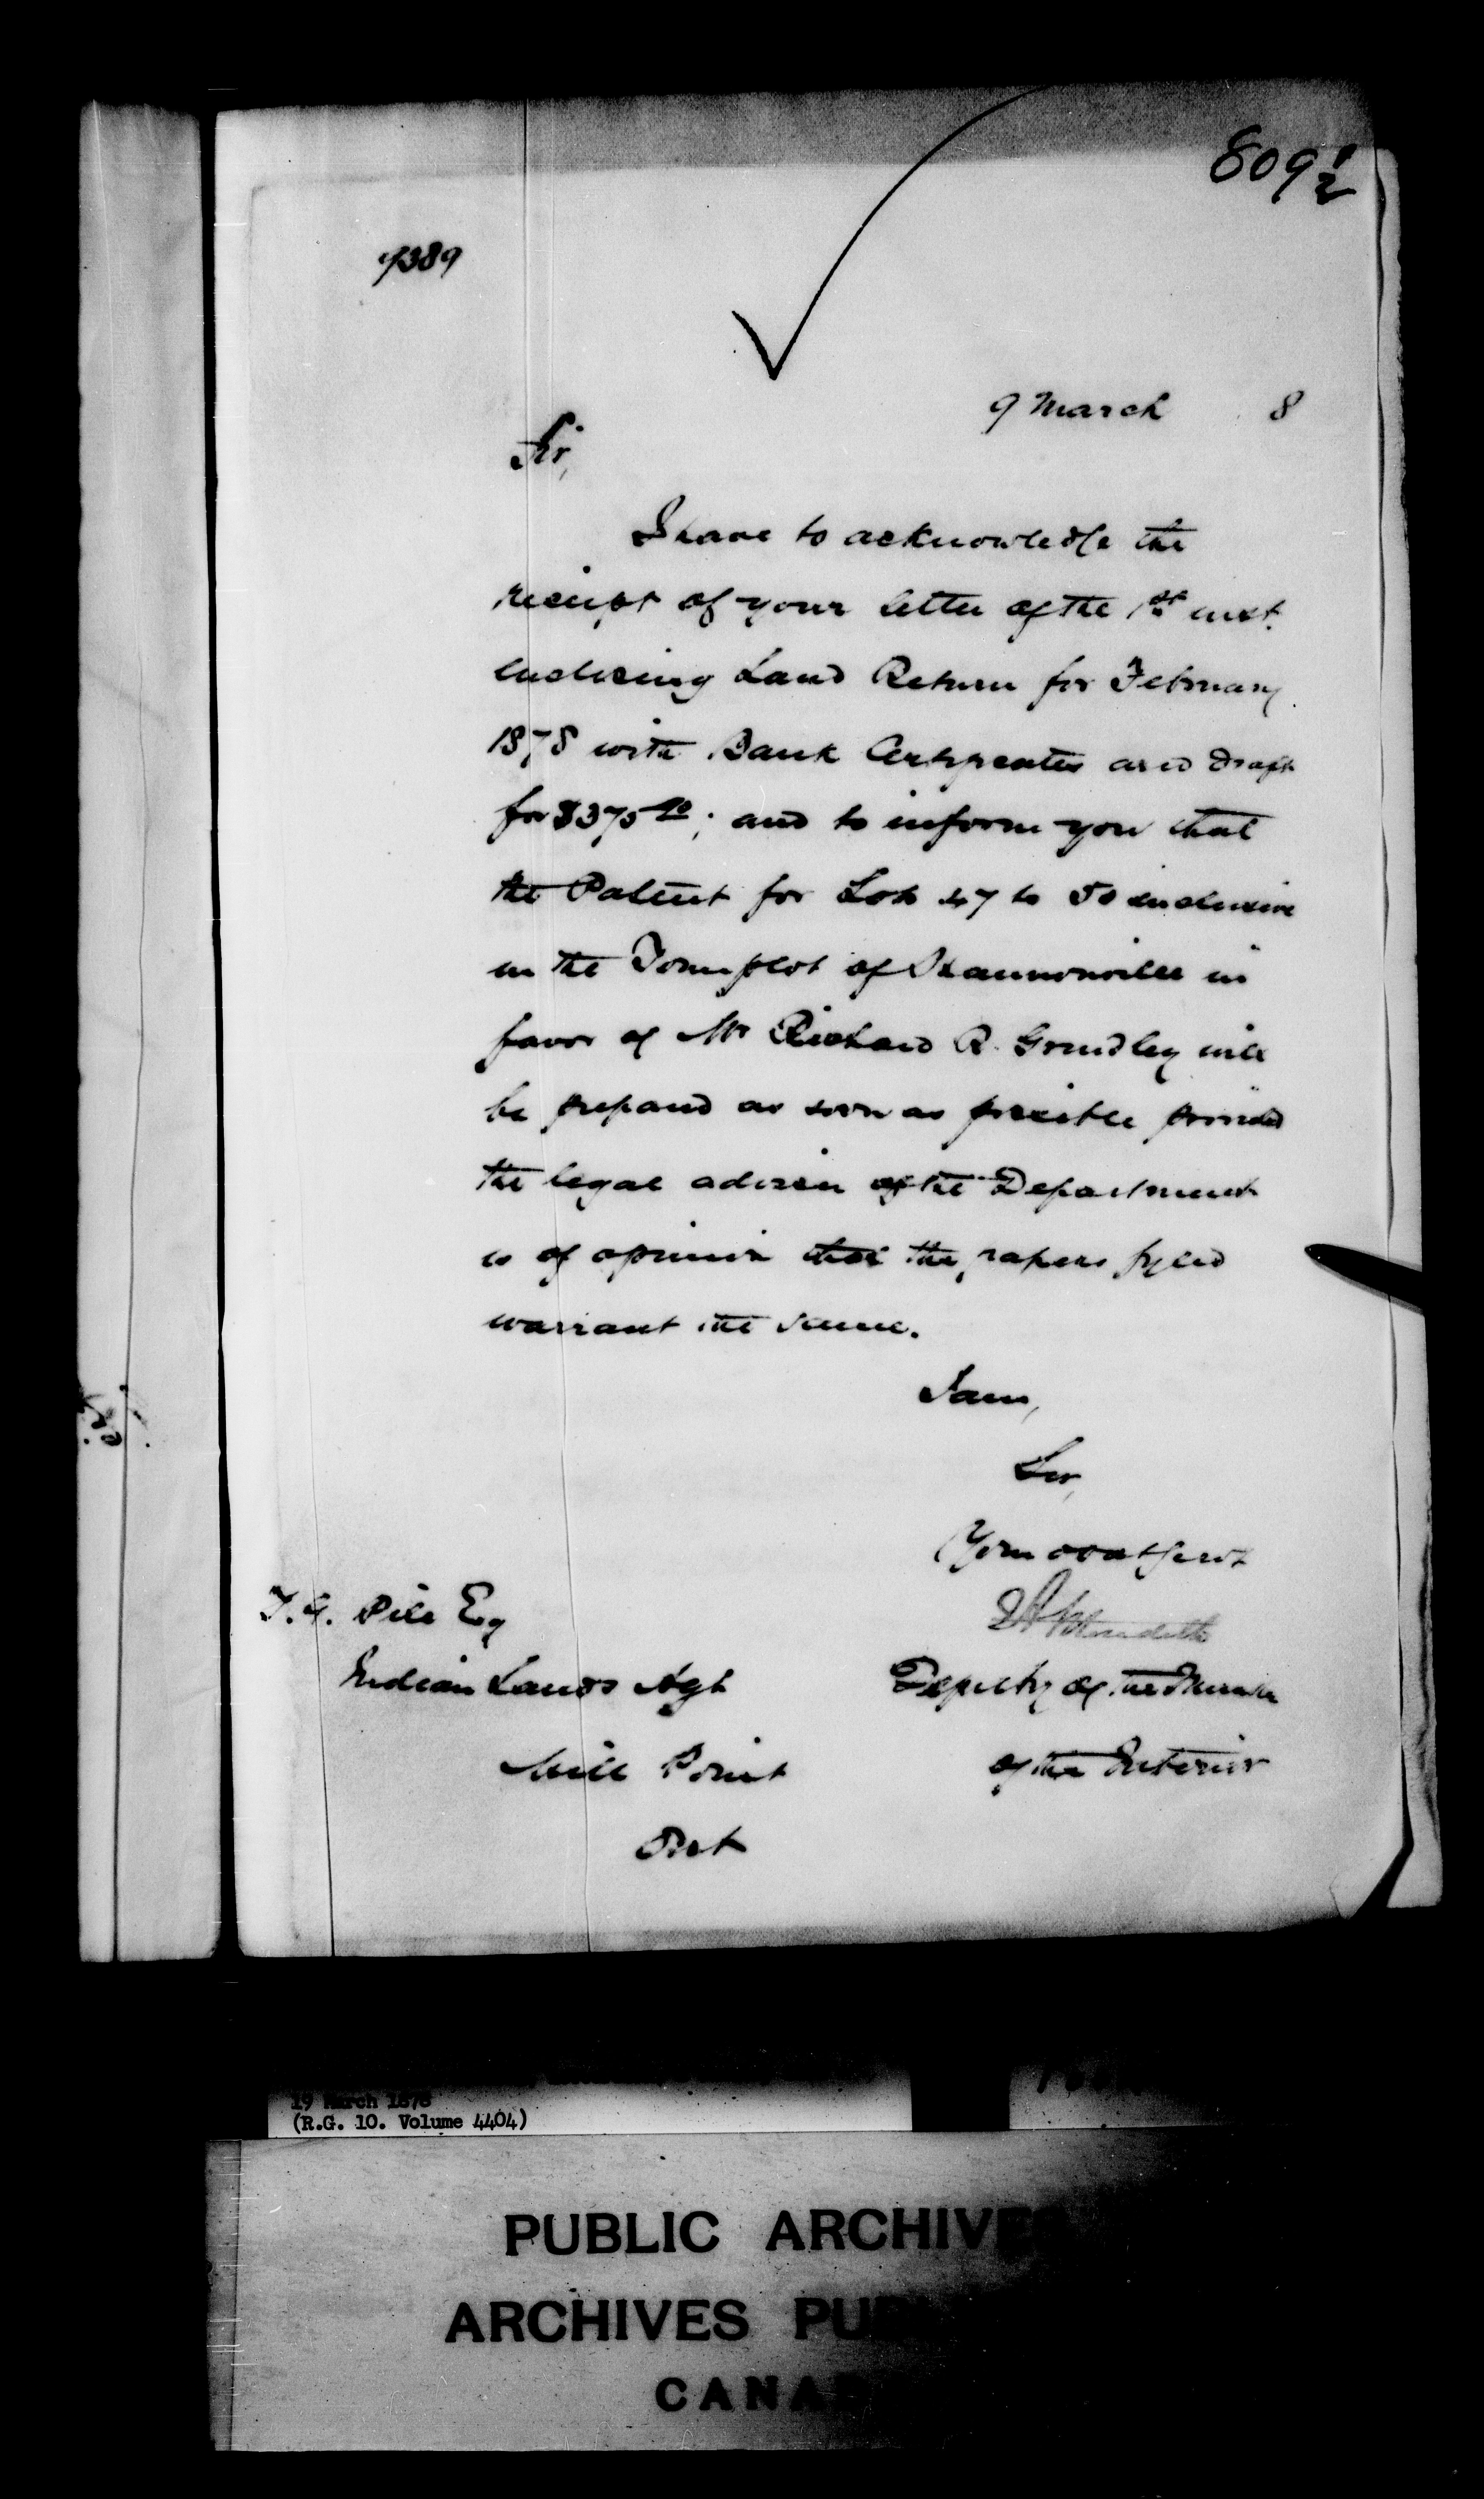 809½
7389
9 March 8
Sir,
I have to acknowledge the
receipt of your letter of the 1st inst.
enclosing Land Return for February
1878 with Bank Certificates and draft
for $375; and to inform you that
the Patent for Lots 47 to 50 inclusive
in the Townplot of Shannonville in
favor of Mr Richard R. Grindley will
be prepared as soon as possible provided
the legal adviser of the Department
is of opinion that the papers fyled
warrant the same.
I am,
Sir,
Your obdt Servt
Meredith
T. G. Pile Esq
Deputy of the Minister
Indian Lands Agt
of the Interior
Mill Point
Ont
19 March 1878
(R.G. 10. Volume 4404)
PUBLIC ARCHIVES
ARCHIVES PU
CANA